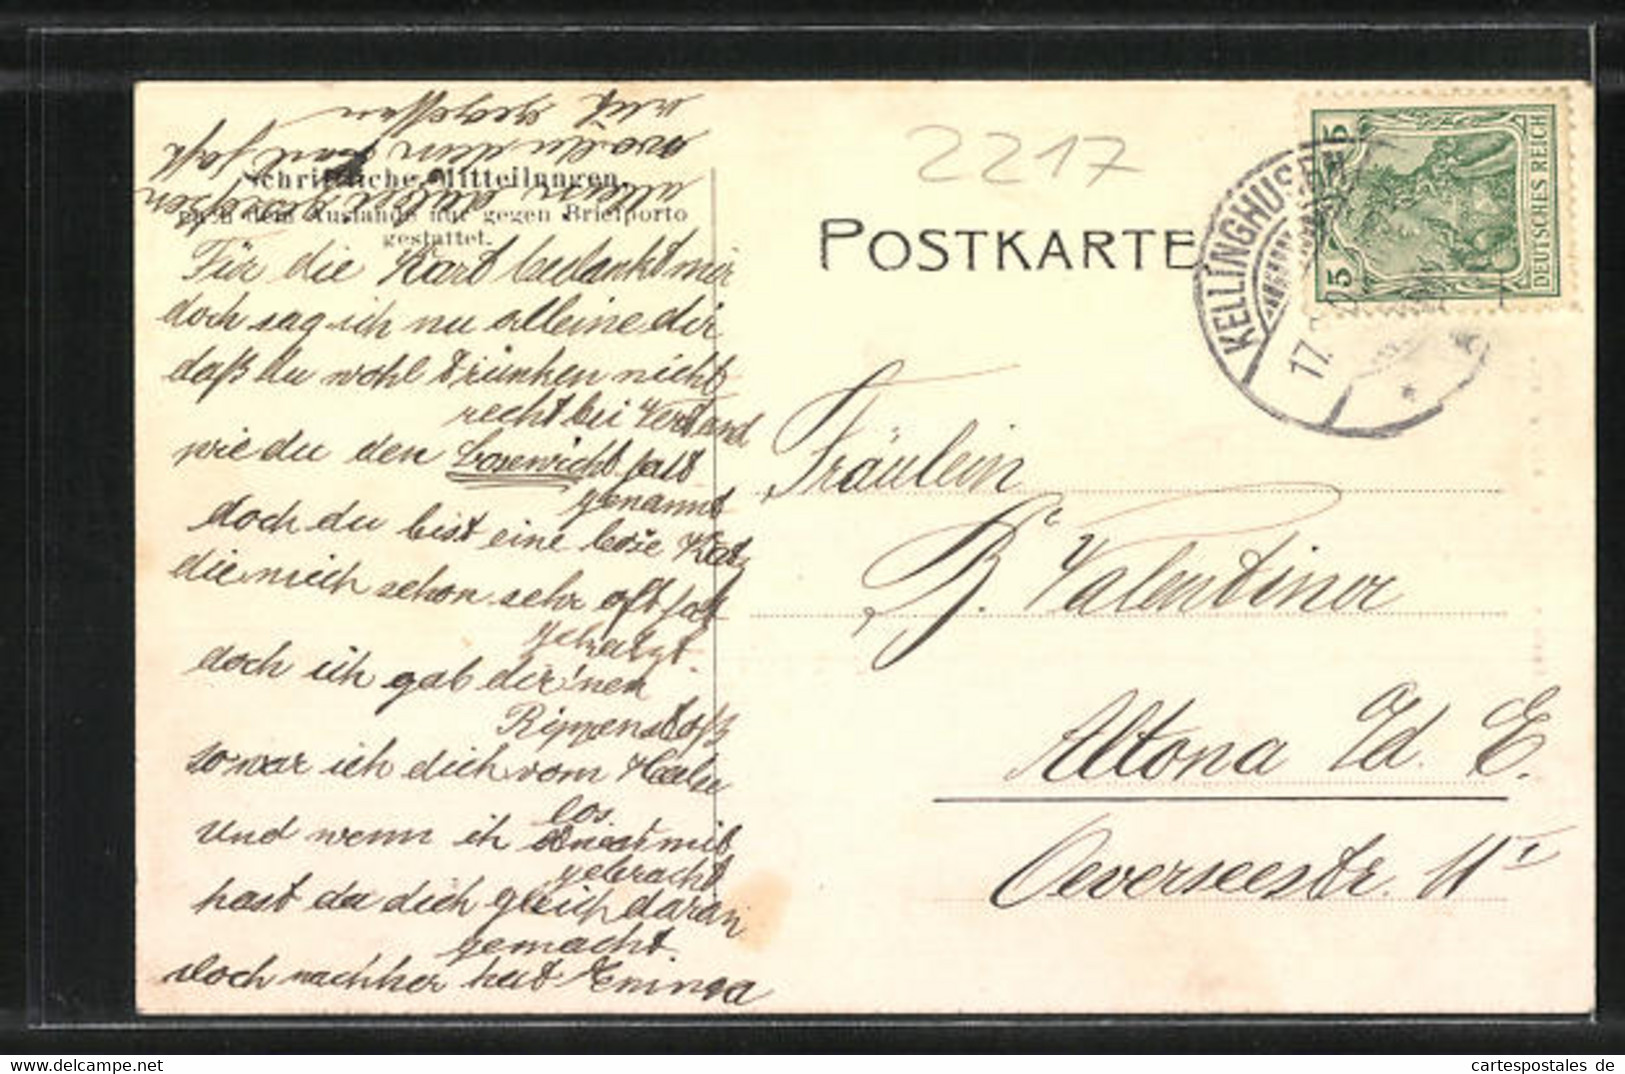 Schriftliche Mitteilungen
nach dem Auslande nur gegen Briefporto
gestattet.
Für die Kart bedankt mir
doch sag ich nu alleine dir
daß du wohl trünken nicht
recht bei Verstand
wie du den Bosewicht hast
genannt
doch du bist eine böse Katz
die mich schon sehr oft hat
gekratzt.
doch ich gab dir 'nen
Rippenstoß
so war ich dich vom Halse
los.
Und wenn ich mit
gebracht
hast du dich gleich daran
gemacht.
Doch nachher hat
2217
POSTKARTE
KELLINGHUSEN
17.
5 5
DEUTSCHES REICH
Fräulein
B. Valentiner
Altona Id. E.
Oeverseestr. 11 I
www.cartespostales.de